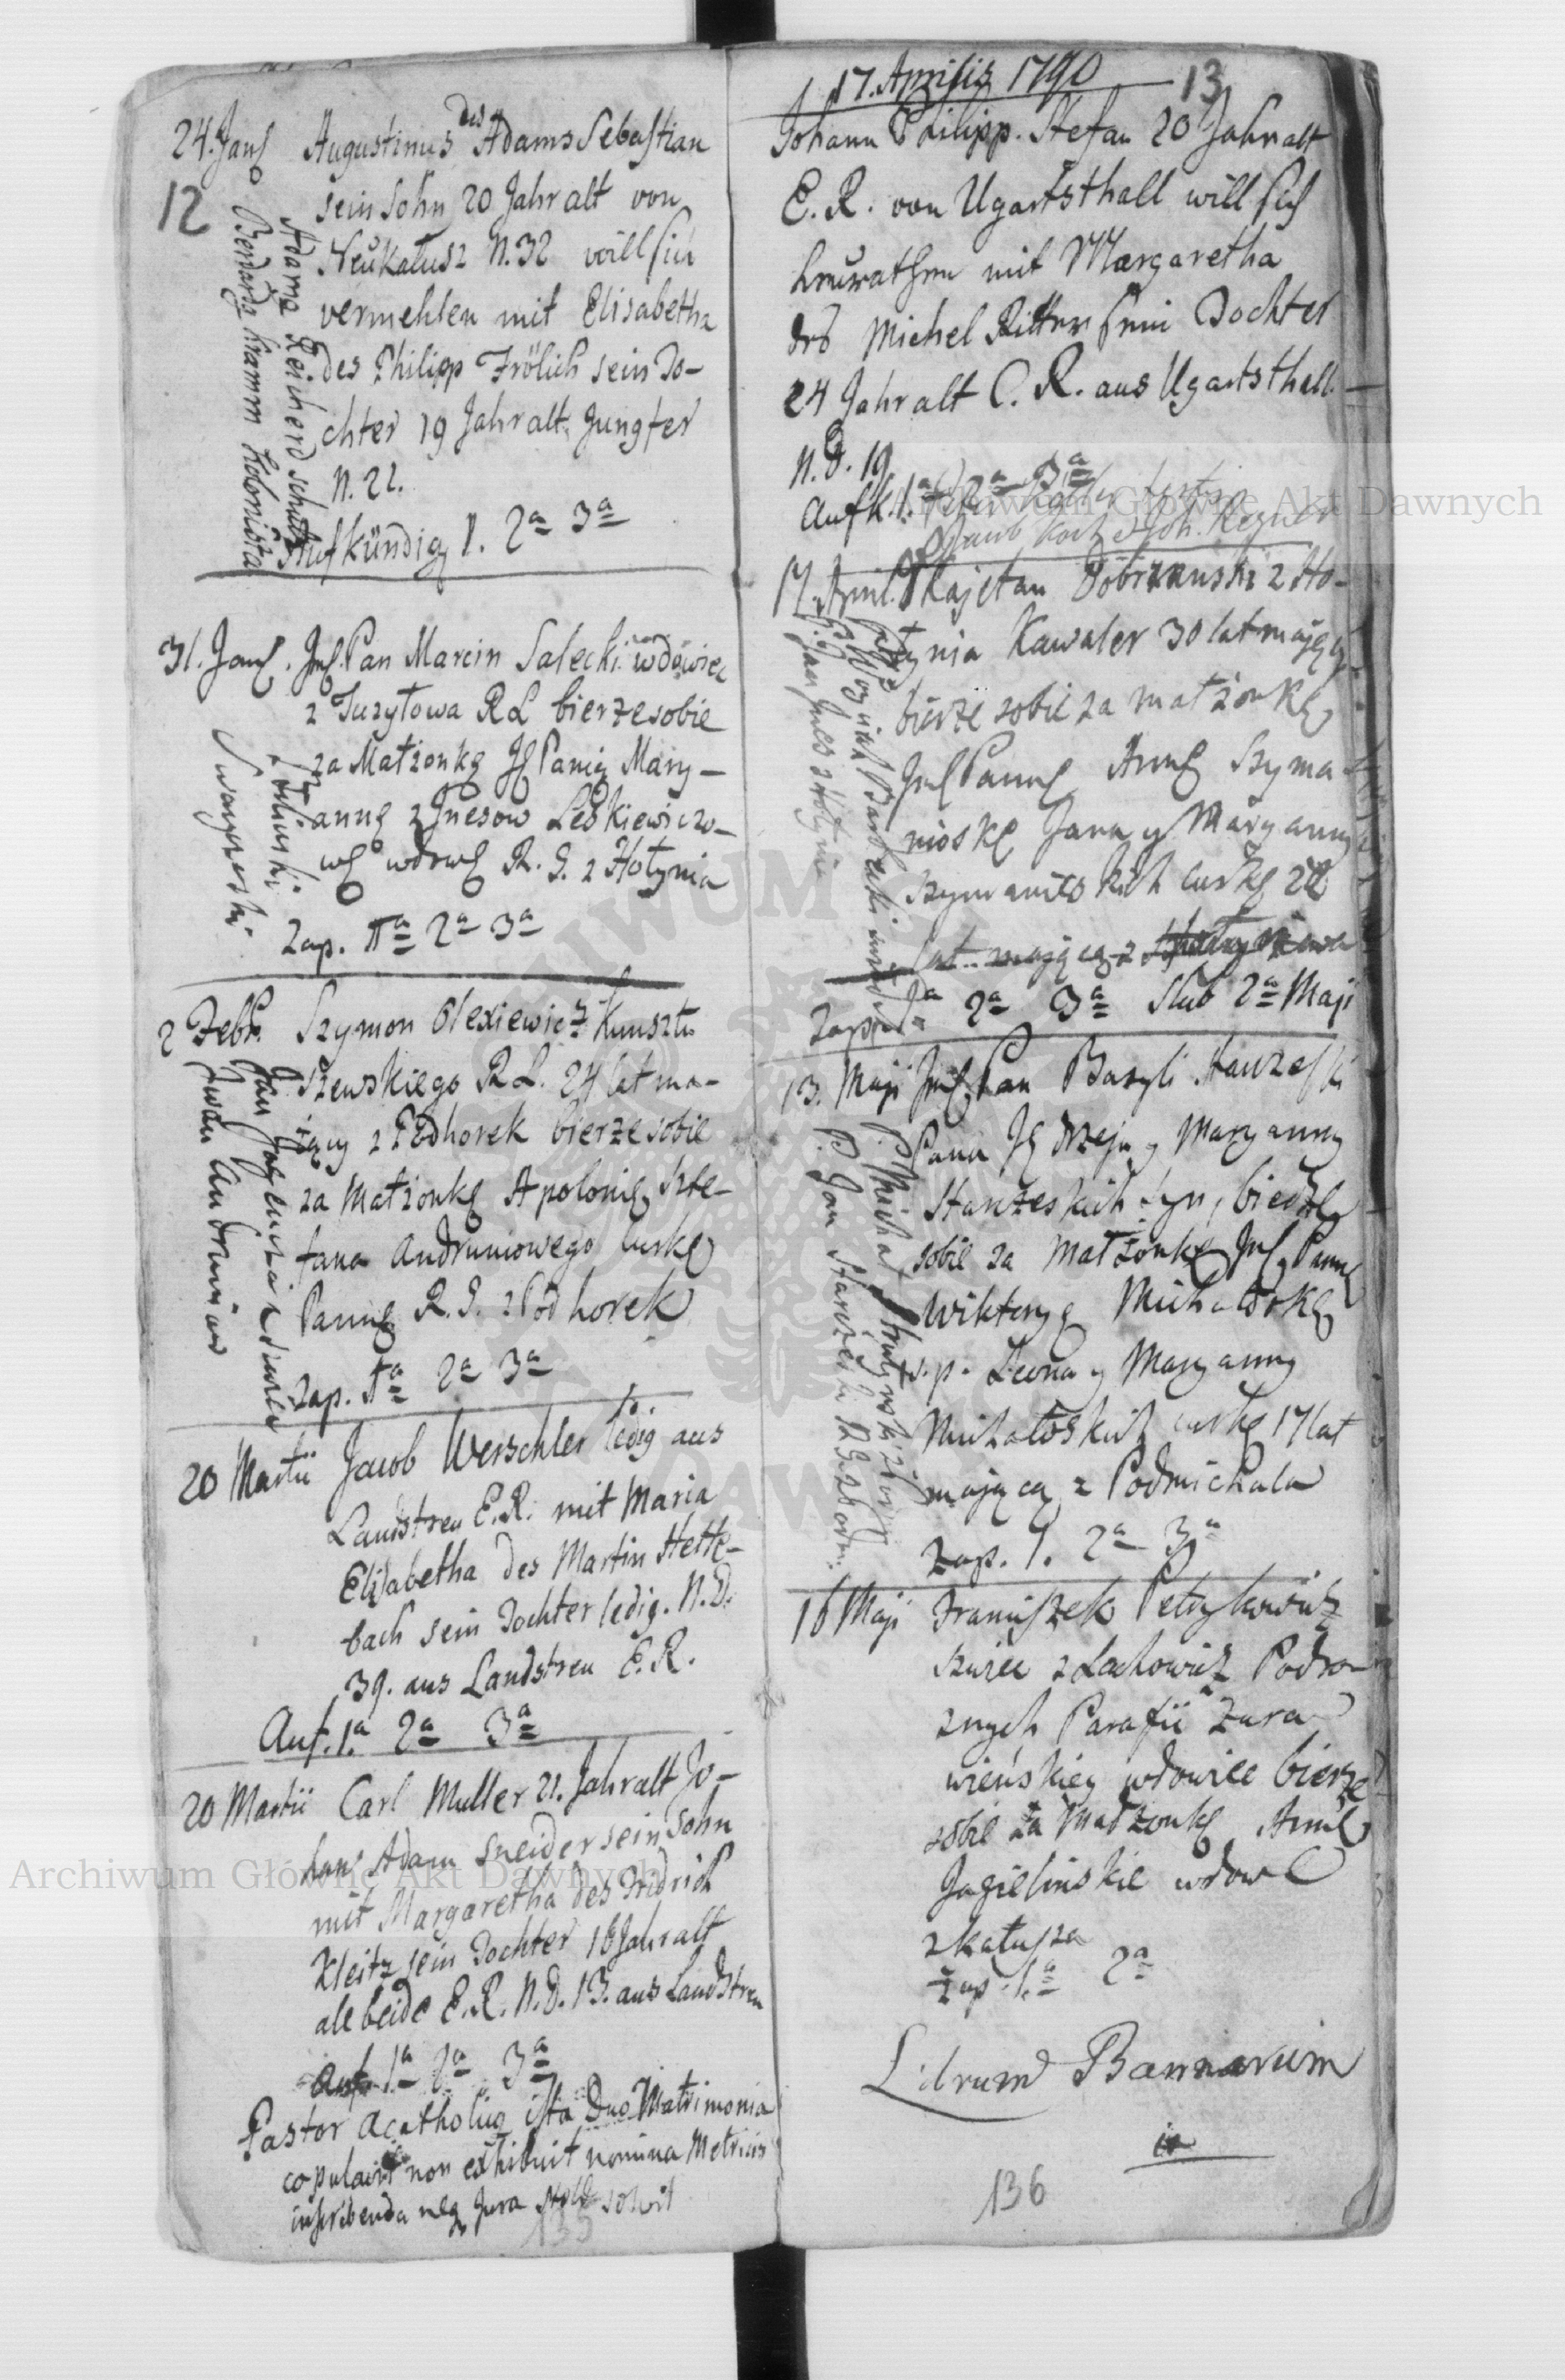 24. Jan
12
Augustinus des Adams Sebastian
sein Sohn 20 Jahr alt von
Neukalusz N. 32 will sich
vermehlen mit Elisabetha
des Philipp Frölich sein To-
chter 19 Jahr alt Jungfer
N. 22.
Aufkündig 1. 2a 3a
Adama Reicherd
Bernarda Kramm kolonista
31. Jan. Pan Marcin Salecki wdowiec
z RL bierze sobie
za Małżonkę Panią Mary-
annę z Leskiewiczo-
wę wdowę R. G. z Hołynia
Zap. 1a 2a 3a
2 Febr. Szymon Olexiewicz Kunsztu
szewskiego RL. 24 lat ma-
iący z Podhorek bierze sobie
za Małżonkę Apolonię Szte-
fana Andruniowego curkę
Pannę R. G. z Podhorek
Zap. 1a 2a 3a
Iwan Andruniow
20 Martii Jacob Werschler ledig aus
Landstreu E. R. mit Maria
Elisabetha des Martin Hette-
bach sein Tochter ledig. N. D.
39. aus Landstreu E. R.
Auf. 1.a 2a 3a
20 Martii Carl Muller 21. Jahr alt Jo-
hans Adam Sneider sein Sohn
mit Margaretha des Fridrich
Kleitz sein Tochter 16 Jahr alt
alle beide E. R. N. D. 13. aus Landstreu
Auf. 1a 2a 3a
Pastor Acatholicus ista Duo Matrimonia
copulavit non exhibuit nomina Metricis
inscribenda neq Jura Stolae solvit
135
17. Aprilis 1790
13
Johann Philipp. Stefan 20 Jahr alt
E. R. von Ugartsthall will sich
heurathen mit Margaretha
des Michel Ritter sein Dochter
24 Jahr alt C. R. aus Ugartsthall
N. D. 19
Aufk. 1.a 2a 3a
Peter
Jacob Koch Joh. Regner
17. April. Kajetan Dobrzański z Ho-
łynia Kawaler 30 lat mający
bierze sobie za małżonkę
Pannę Annę Szyma-
nioskę Jana y Maryanny
Szymanioskich curkę 22
lat mającą z
Zap. 1a 2a 3a Slub 2a Maji
13. Maji Pan Bazyli Starzeski
Pana Jędrzeja y Maryanny
Starzeskich syn, bierze
sobie za Małżonkę Pannę
Wiktoryę Michałoskę
s. p. Leona y Maryanny
Michałoskich curkę 17 lat
mającą z Podmichala
Zap. 1. 2a 3a
P. Jan Starzeski
16 Maji Franciszek Petrykowicz
szwiec z Lachowicz Podro-
znych Parafii Zura-
wieńskiey wdowiec bierze
sobie za Małżonkę Annę
Jagielinskie wdowę
z Kałusza
Zap. 1.a 2a
Librum Bannorum
136
Archiwum Główne Akt Dawnych
Archiwum Główne Akt Dawnych